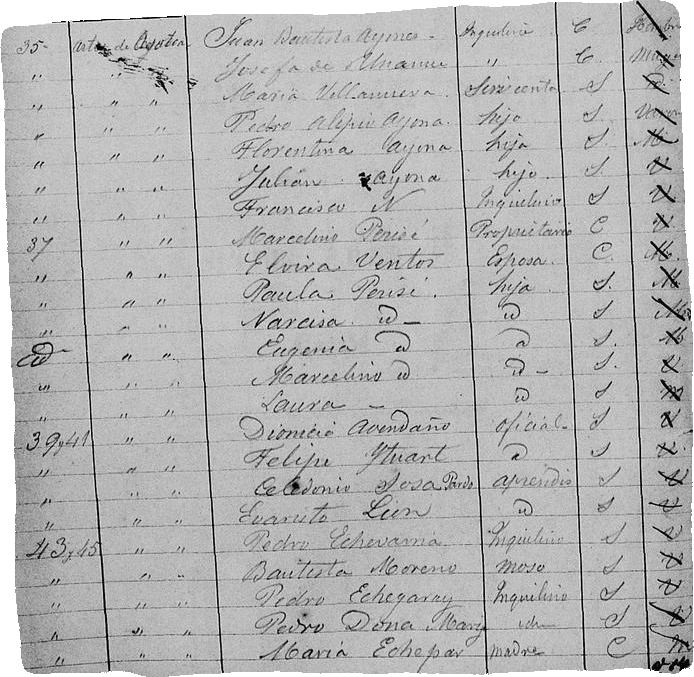 35 Juan Bautista Ayones Inquilino C
" " " Josefa de " C.
" " " Maria Villanueva Sirvienta S
" " " Pedro Alipio Ayona hijo S. Varon
" " " Florentina Ayona hija S.
" " " Julián Ayona hijo S. V
" " " Francisco N Inquilino S V
37 " " Marcelino Perisé Propietario C V
" " " Elvira Ventos Esposa C.
" " " Paula Perisé. hija S. M
" " " Narcisa id id S
id " " Eugenia id id S. M
" " " Marcelino id id S. V
" " " Laura id S M
39 y 41 " " Dionicio Avendaño oficial S V
" " " Felipe Ytuart id S V
" " " Celedonio Sosa Pardo aprendis S V
" " " Evaristo Lion id S V
43 y 45 " " Pedro Echevarria Inquilino S V
" " " Bautista Moreno moso S V
" " " Pedro Echegaray Inquilino S V
" " " Pedro Dona Mary id S V
" " " Maria Echepar madre C M